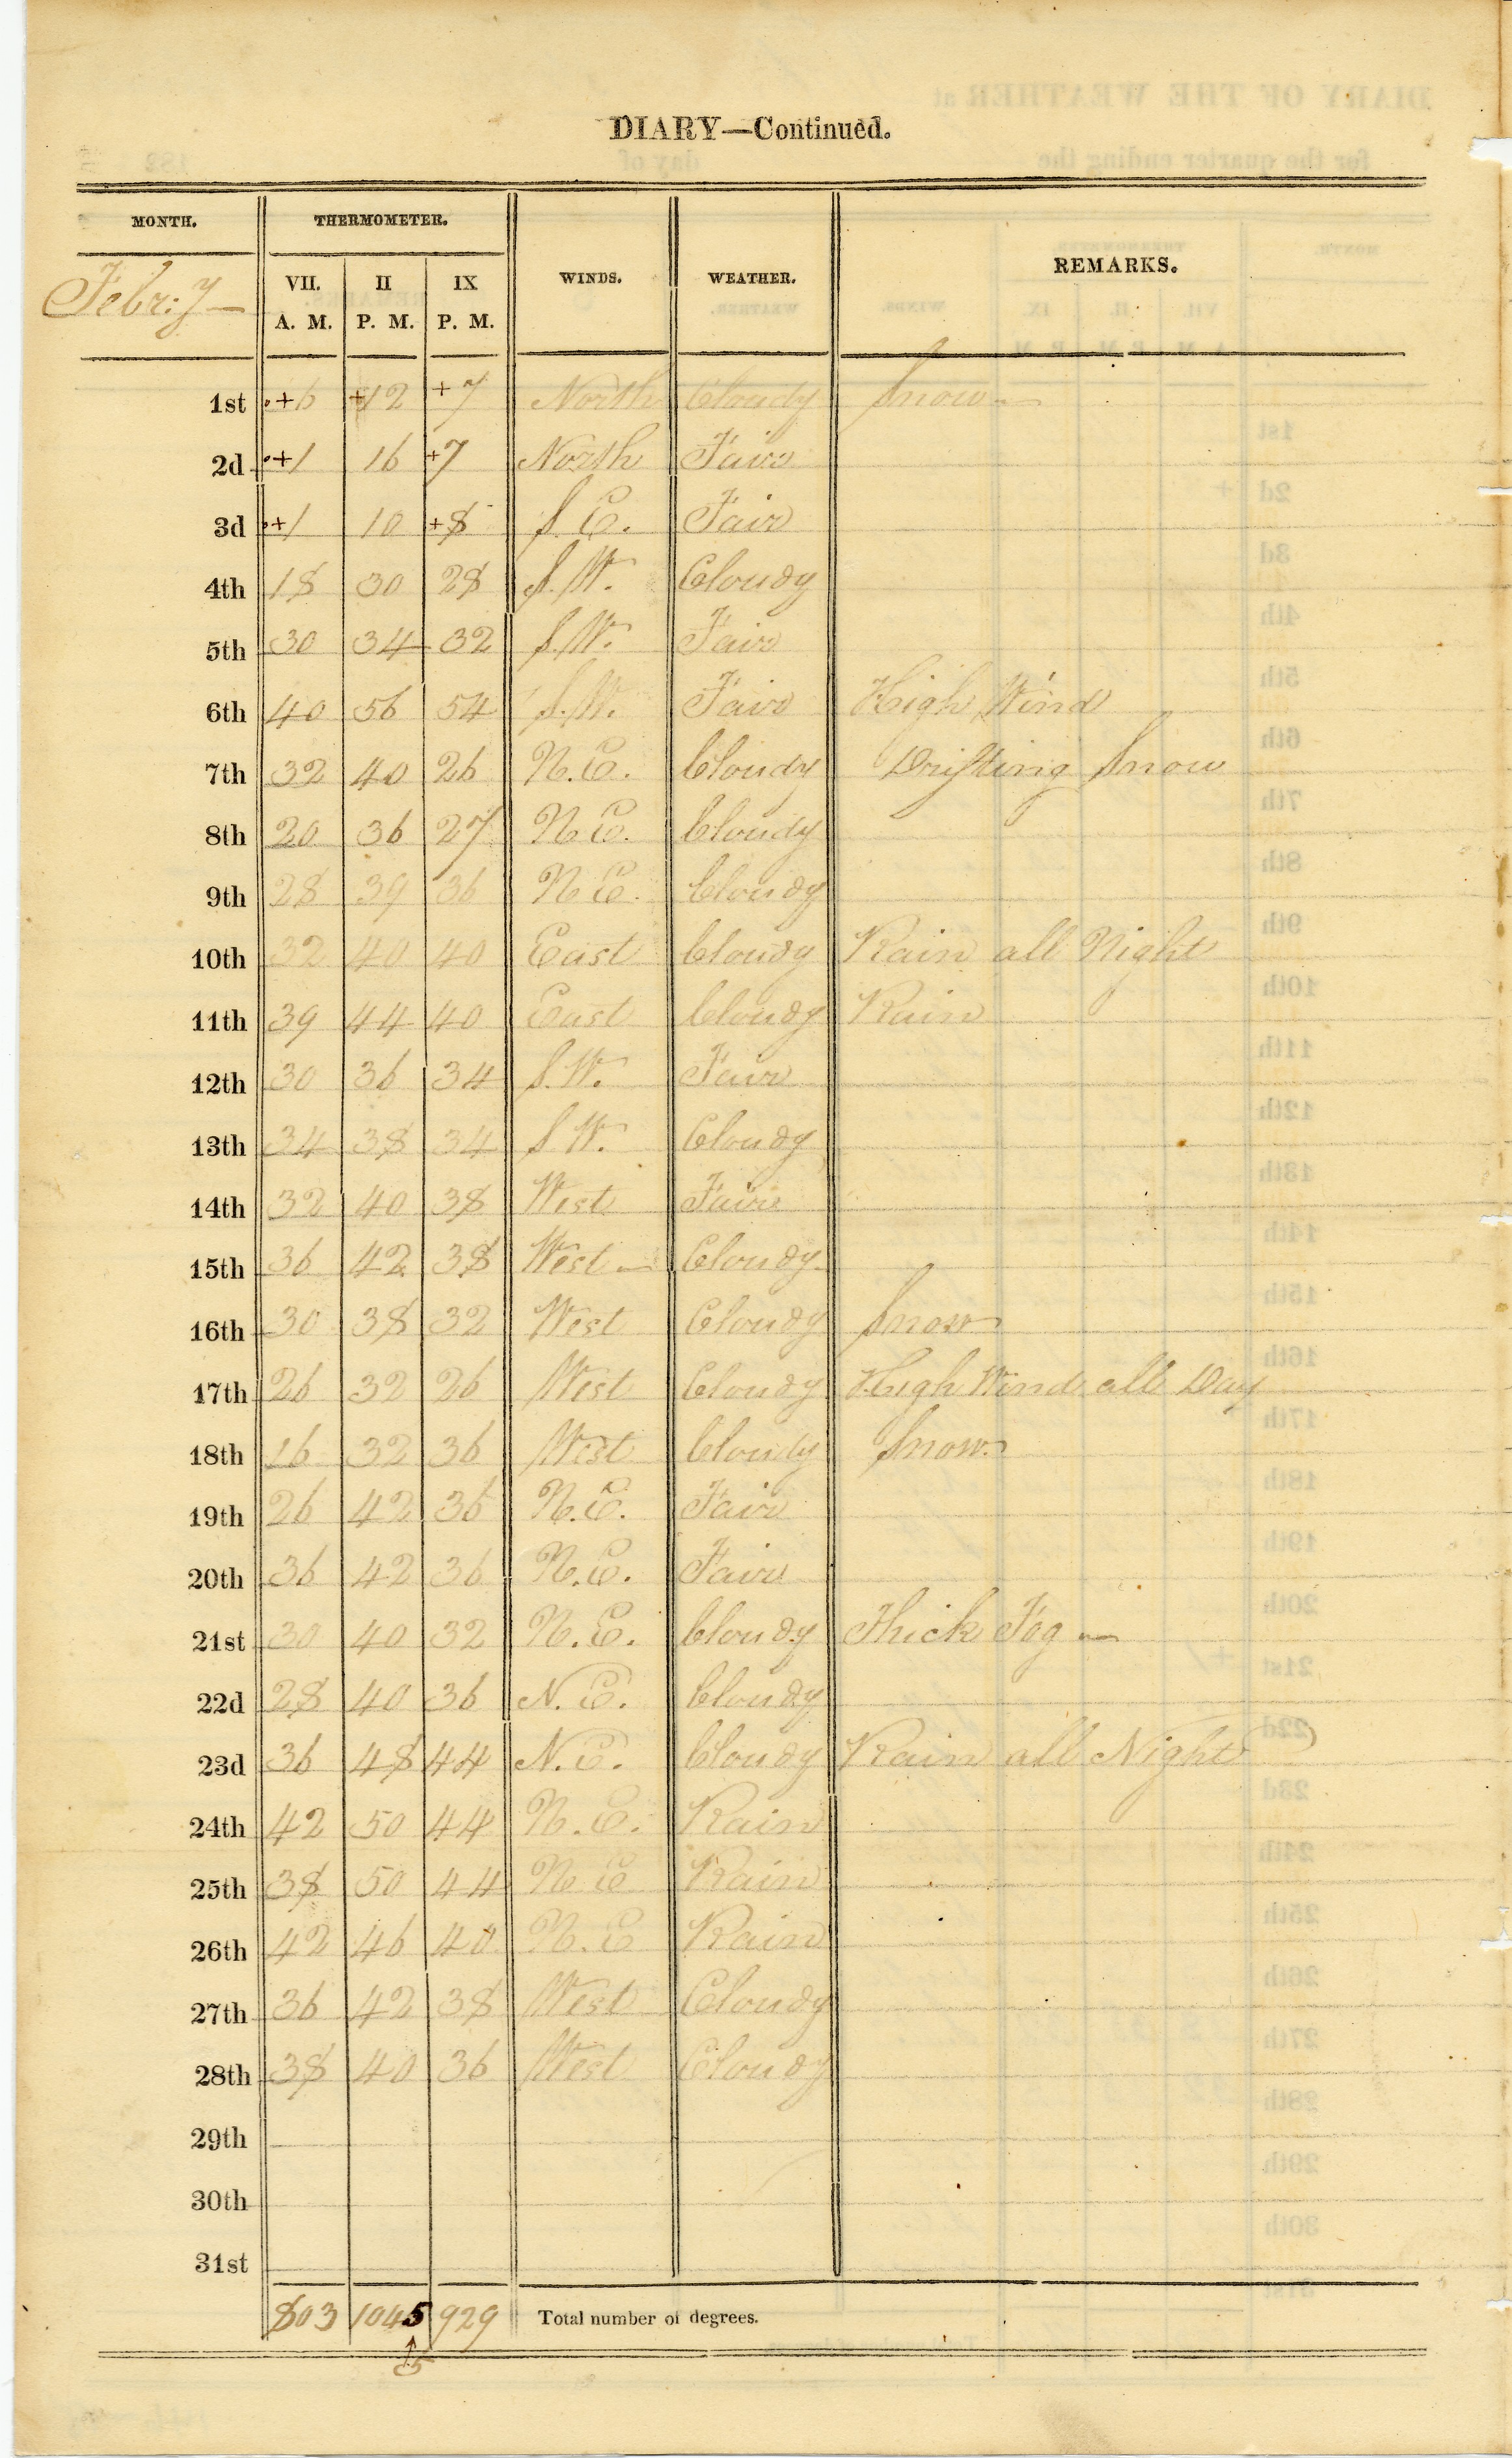 DIARY—Continued.
MONTH. THERMOMETER. WINDS. WEATHER. REMARKS.
Febr:y — VII. A. M. II P. M. IX P. M.
1st +6 +12 +7 North Cloudy Snow —
2d +1 16 +7 North Fair
3d +1 10 +8 S. E. Fair
4th 18 30 28 S. W. Cloudy
5th 30 34 32 S. W. Fair
6th 40 56 54 S. W. Fair High Wind
7th 32 40 26 N. E. Cloudy Drifting Snow
8th 20 36 27 N E. Cloudy
9th 28 39 36 N E. Cloudy
10th 32 40 40 East Cloudy Rain all Night
11th 39 44 40 East Cloudy Rain
12th 30 36 34 S. W. Fair
13th 34 38 34 S W. Cloudy
14th 32 40 38 West Fair
15th 36 42 38 West — Cloudy
16th 30 38 32 West Cloudy Snow
17th 26 32 26 West Cloudy High Wind all Day
18th 16 32 36 West Cloudy Snow.
19th 26 42 36 N. E. Fair
20th 36 42 36 N. E. Fair
21st 30 40 32 N. E. Cloudy Thick Fog —
22d 28 40 36 N. E. Cloudy
23d 36 48 44 N. E. Cloudy Rain all Night
24th 42 50 44 N. E. Rain
25th 38 50 44 N E Rain
26th 42 46 40 N. E Rain
27th 36 42 38 West Cloudy
28th 38 40 36 West Cloudy
29th
30th
31st
803 1045 929 Total number of degrees.
5